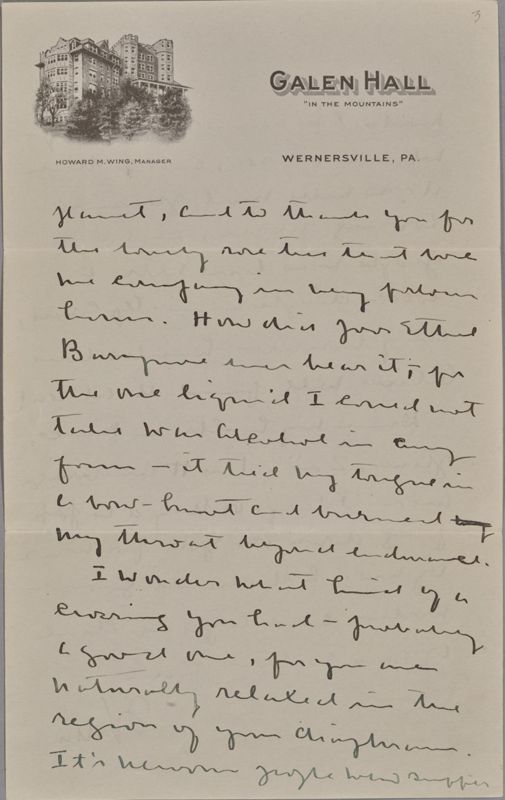 3
GALEN HALL
"IN THE MOUNTAINS"
HOWARD M. WING, MANAGER
WERNERSVILLE, PA.
planet, and to thank you for
the lovely rose tree that bore
me company in my
hours. How did poor Ethel
Barrymore ever bear it; for
the one liquid I could not
take was alcohol in any
form – it tied my tongue in
a bow-knot and burned
my throat beyond endurance.
I wonder what kind of a
crossing you had – probably
a good one, for you are
naturally relaxed in the
region of your diaphragm.
It's nervous people who suffer